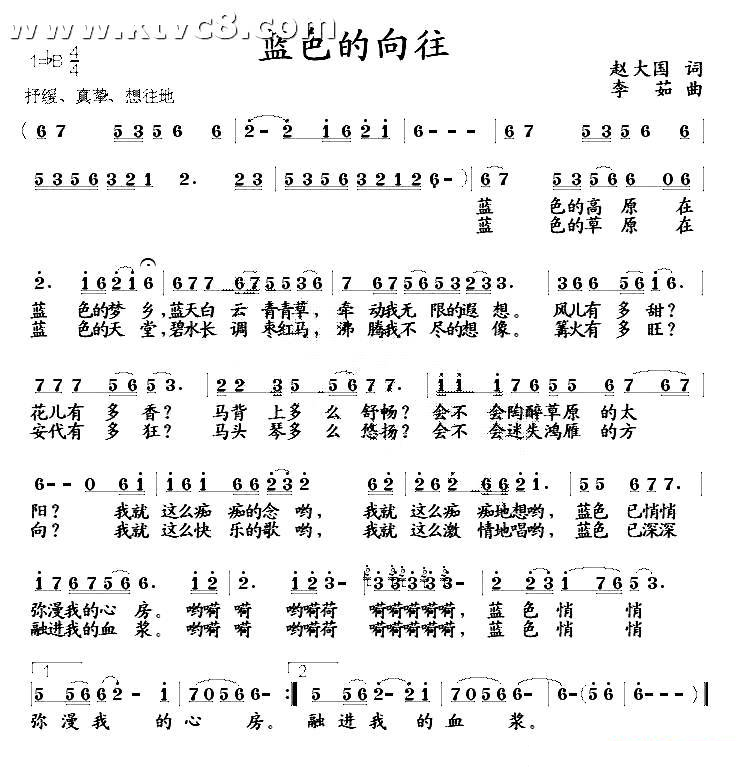 www.klvc8.com
蓝色的向往
1=♭B 4/4
赵大国 词
抒缓、真挚、想往地
李茹 曲
(67 5356 6 | 2- 2 1621 | 6--- | 67 5356 6 |
5356321 2. 23 | 535632126- ) | 67 5356 6 06 |
蓝 色的高 原 在
蓝 色的草 原 在
2. 16216 | 677 675536 | 7 675653233. | 366 5616. |
蓝 色的梦 乡,蓝天白 云 青青草, 牵 动我无 限的遐 想。 风儿有 多 甜?
蓝 色的天 堂,碧水长 调 枣红马, 沸 腾我不 尽的想 像。 篝火有 多 旺?
777 5653. | 22 35 5677. | 11 17655 67 67 |
花儿有 多 香? 马背 上多 么 舒畅? 会不 会陶醉草原 的太
安代有 多 狂? 马头 琴多 么 悠扬? 会不 会迷失鸿雁 的方
6-- 0 61 | 161 66232 62 | 262 6621. | 55 677. |
阳? 我就 这么痴 痴的念 哟, 我就 这么痴 痴地想哟, 蓝色 已悄悄
向? 我就 这么快 乐的歌 哟, 我就 这么激 情地唱哟, 蓝色 已深深
1767566. 12 | 2. 123- 33333- | 2 231 7653. |
弥漫我的心 房。 哟嗬 嗬 哟嗬荷 嗬嗬嗬嗬嗬, 蓝 色 悄 悄
融进我的血 浆。 哟嗬 嗬 哟嗬荷 嗬嗬嗬嗬嗬, 蓝 色 悄 悄
1 2
5 5662- 1 | 705666- :‖ 5 5662- 21 | 705666 | 6-(56 | 6---)‖
弥 漫 我 的 心 房。 融 进 我 的 血 浆。